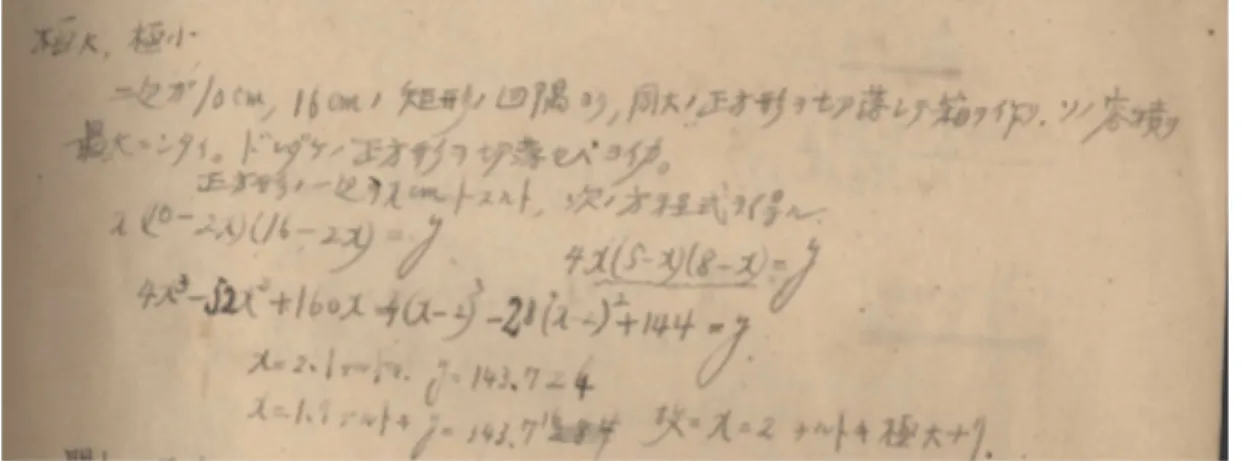 極大, 極小
二辺ガ10cm, 16cmノ矩形ノ四隅ヨリ, 同大ノ正方形ヲ切落シテ箱ヲ作リ. ソノ容積ヲ
最大ニシタイ。ドレダケノ正方形ヲ切落セバヨイカ。
正方形ノ一辺ヲxcmトスルト, 次ノ方程式ヲ得ル.
x(10-2x)(16-2x)=y
4x(5-x)(8-x)=y
4x³-52x²+160x=4(x-2)³-28(x-2)²+144=y
x=2.1 y=143.724
x=1.9ナルトキ y=143.7 故ニx=2ナルトキ極大ナリ.